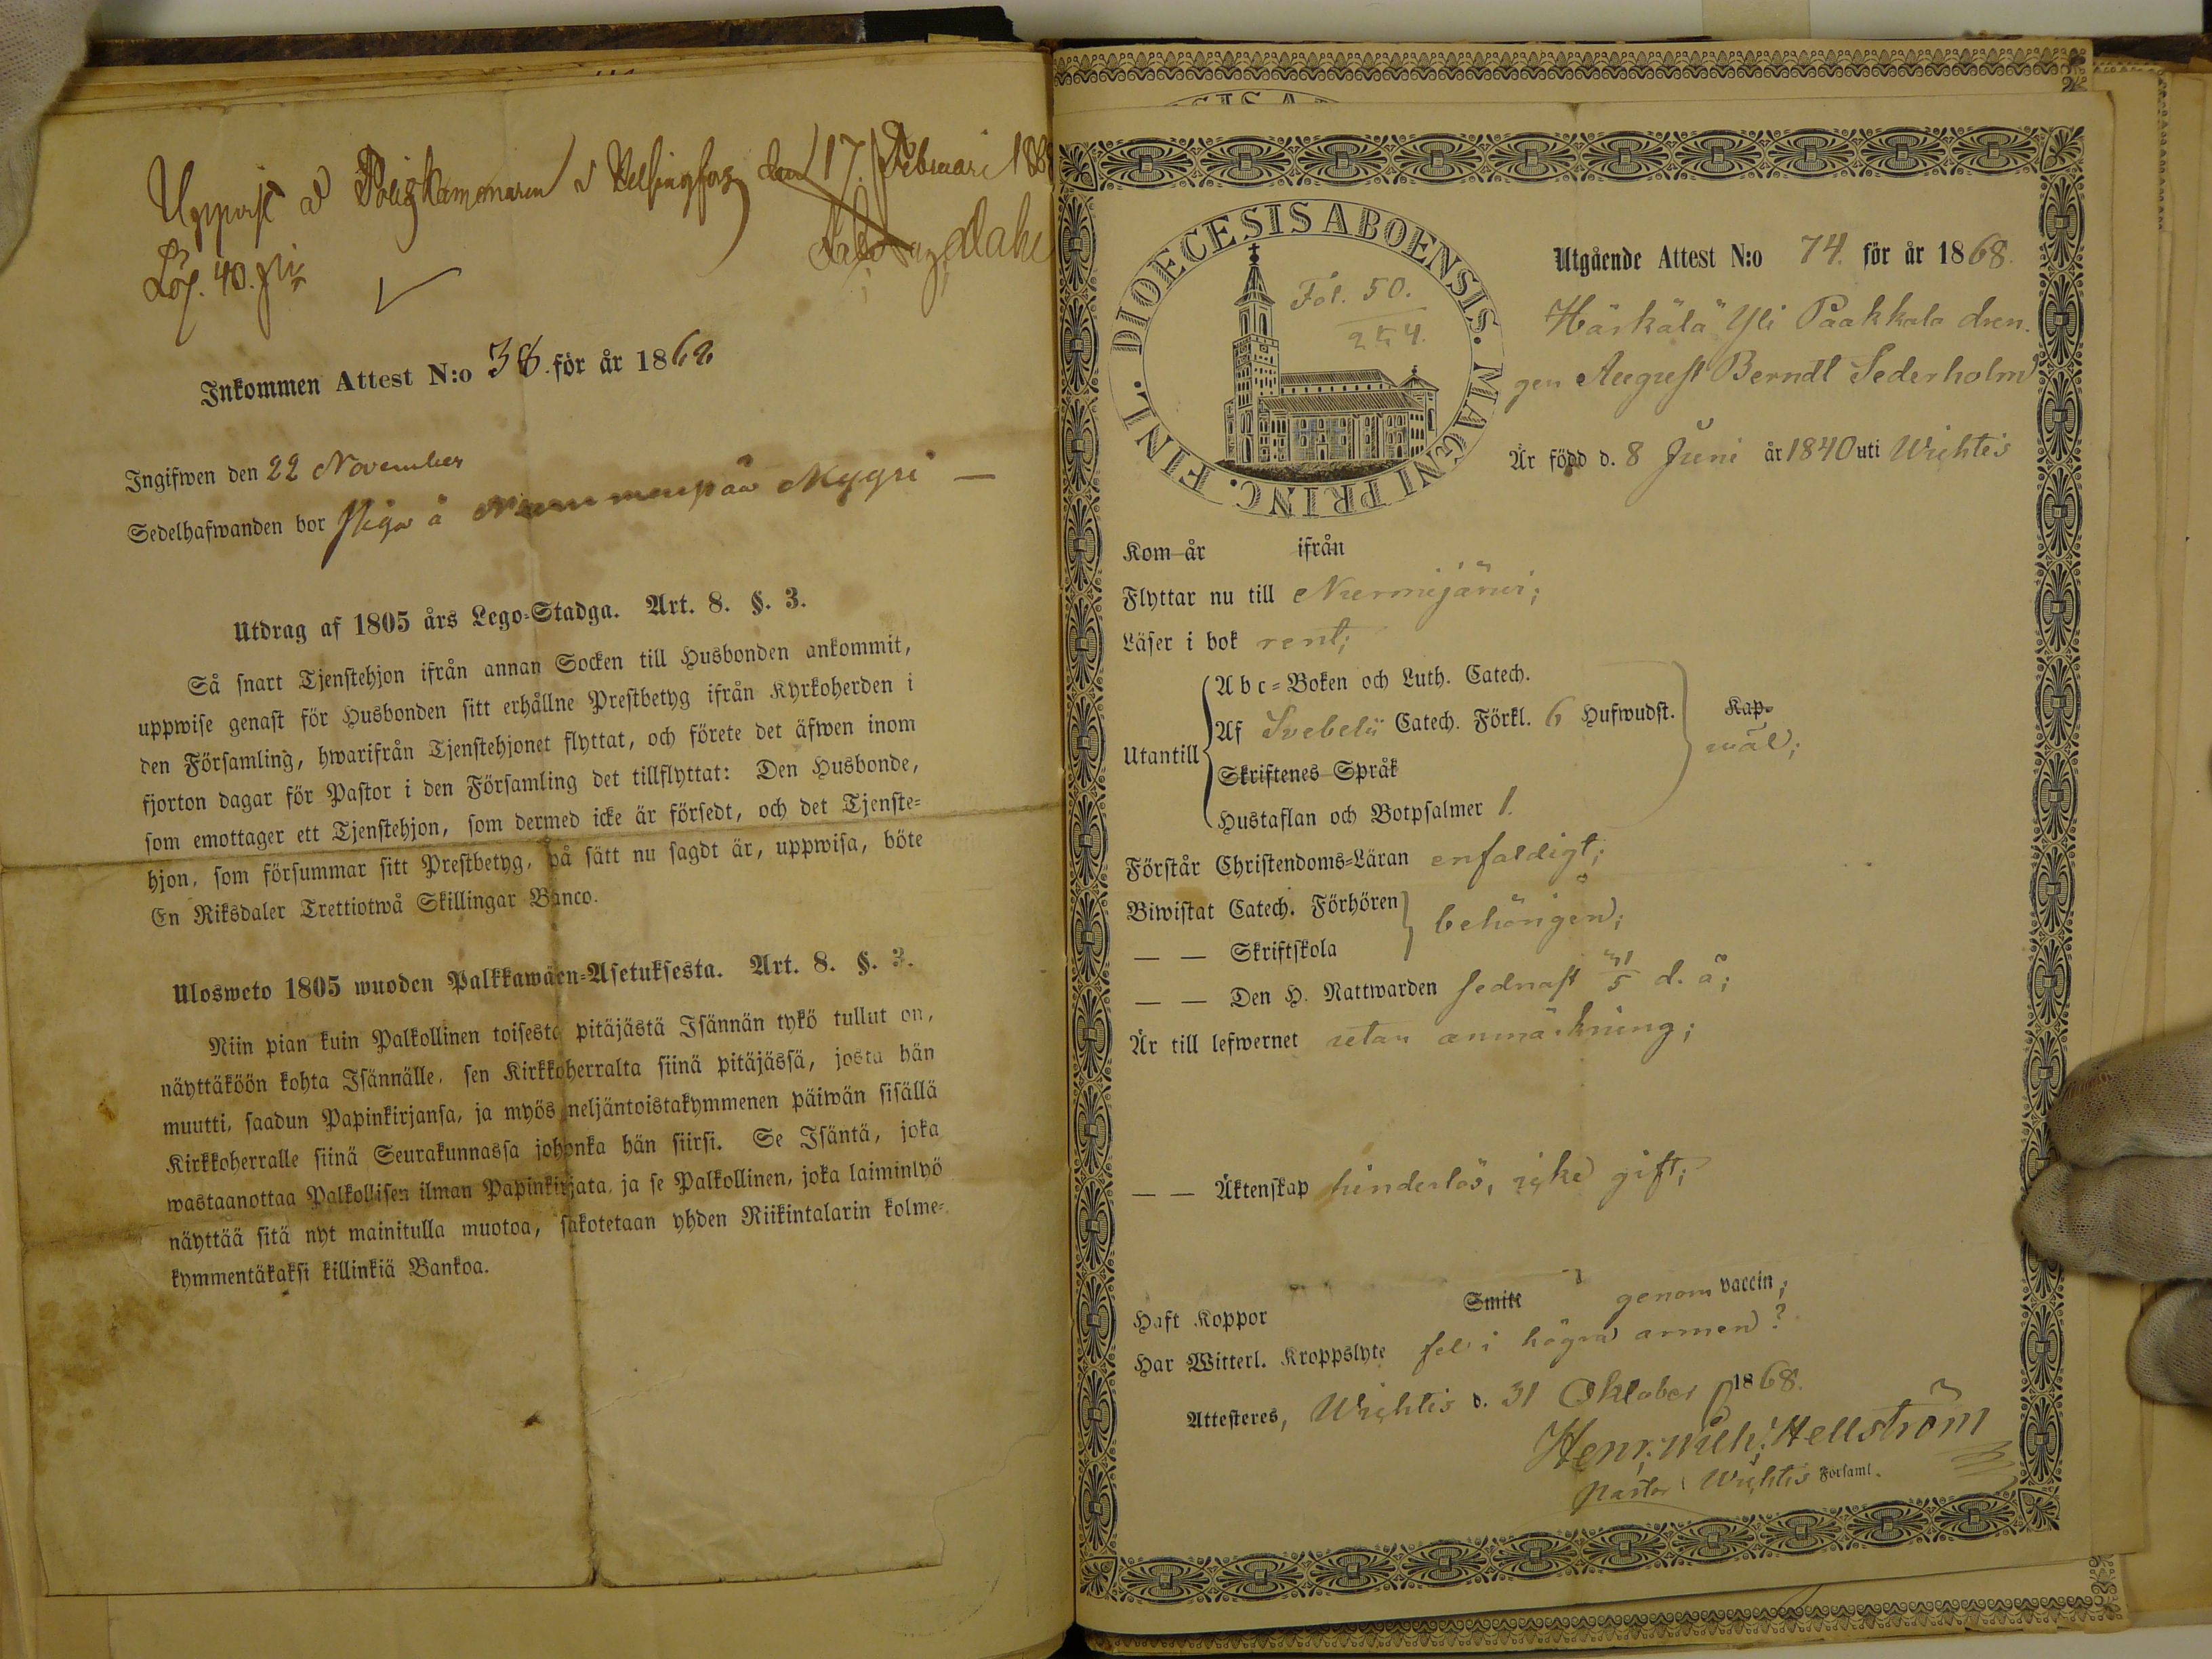 Uppvist å Poliskammaren i Helsingfors den 17. Februari
Lös. 40. p:i
Inkommen Attest N:o 38. för år 1868
Ingifwen den 22 November
Sedelhafwanden bor Piga å Nummenpää Myyri —
Utdrag af 1805 års Lego-Stadga. Art. 8. §. 3.
Så snart Tjenstehjon ifrån annan Socken till Husbonden ankommit,
uppwise genast för Husbonden sitt erhållne Prestbetyg ifrån Kyrkoherden i
den Församling, hwarifrån Tjenstehjonet flyttat, och förete det äfwen inom
fjorton dagar för Pastor i den Församling det tillflyttat: Den Husbonde,
som emottager ett Tjenstehjon, som dermed icke är försedt, och det Tjenste-
hjon, som försummar sitt Prestbetyg, på sätt nu sagdt är, uppwisa, böte
En Riksdaler Trettiotwå Skillingar Banco.
Ulosweto 1805 wuoden Palkkawäen-Asetuksesta. Art. 8. §. 3.
Niin pian kuin Palkollinen toisesta pitäjästä Isännän tykö tullut on,
näyttäköön kohta Isännälle, sen Kirkkoherralta siinä pitäjässä, josta hän
muutti, saadun Papinkirjansa, ja myös neljäntoistakymmenen päiwän sisällä
Kirkkoherralle siinä Seurakunnassa johonka hän siirsi. Se Isäntä, joka
wastaanottaa Palkollisen ilman Papinkirjata, ja se Palkollinen, joka laiminlyö
näyttää sitä nyt mainitulla muotoa, sakotetaan yhden Riikintalarin kolme-
kymmentäkaksi killinkiä Bankoa.
DIOECESIS ABOENSIS. MAGNI PRINC. FINL.
Fol. 50.
254.
Utgående Attest N:o 74. för år 1868.
Härkälä Yli Paakkala dren-
gen August Berndt Sederholm
Är född d. 8 Juni år 1840 uti Wichtis
Kom år ifrån
Flyttar nu till Nurmijärwi;
Läser i bok rent;
Utantill
Abc-Boken och Luth. Catech.
Af Svebelii Catech. Förkl. 6 Hufwudst.
Skriftenes Språk
Hustaflan och Botpsalmer 1.
Kap-
wäl;
Förstår Christendoms-Läran enfaldigt;
Biwistat Catech. Förhören
— — Skriftskola
behörigen;
— — Den H. Nattwarden sednast 31/5 d. å;
Är till lefwernet utan anmärkning;
— — Äktenskap hinderlös, icke gift;
Haft Koppor Smitt genom vaccin;
Har Witterl. Kroppslyte fel i högra armen?
Attesteras, Wichtis d. 31 Oktober 1868.
Henr. Wilh. Hellström
Pastor i Wichtis Församl.